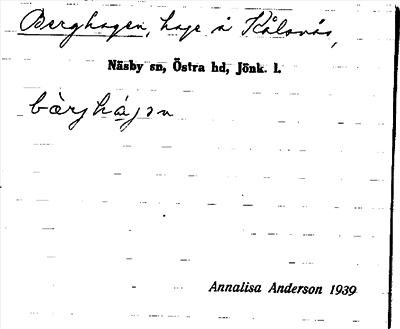 Berghagen, hage å Kålsnäs,
Näsby sn, Östra hd, Jönk. l.
bàrjhágən
Annalisa Anderson 1939